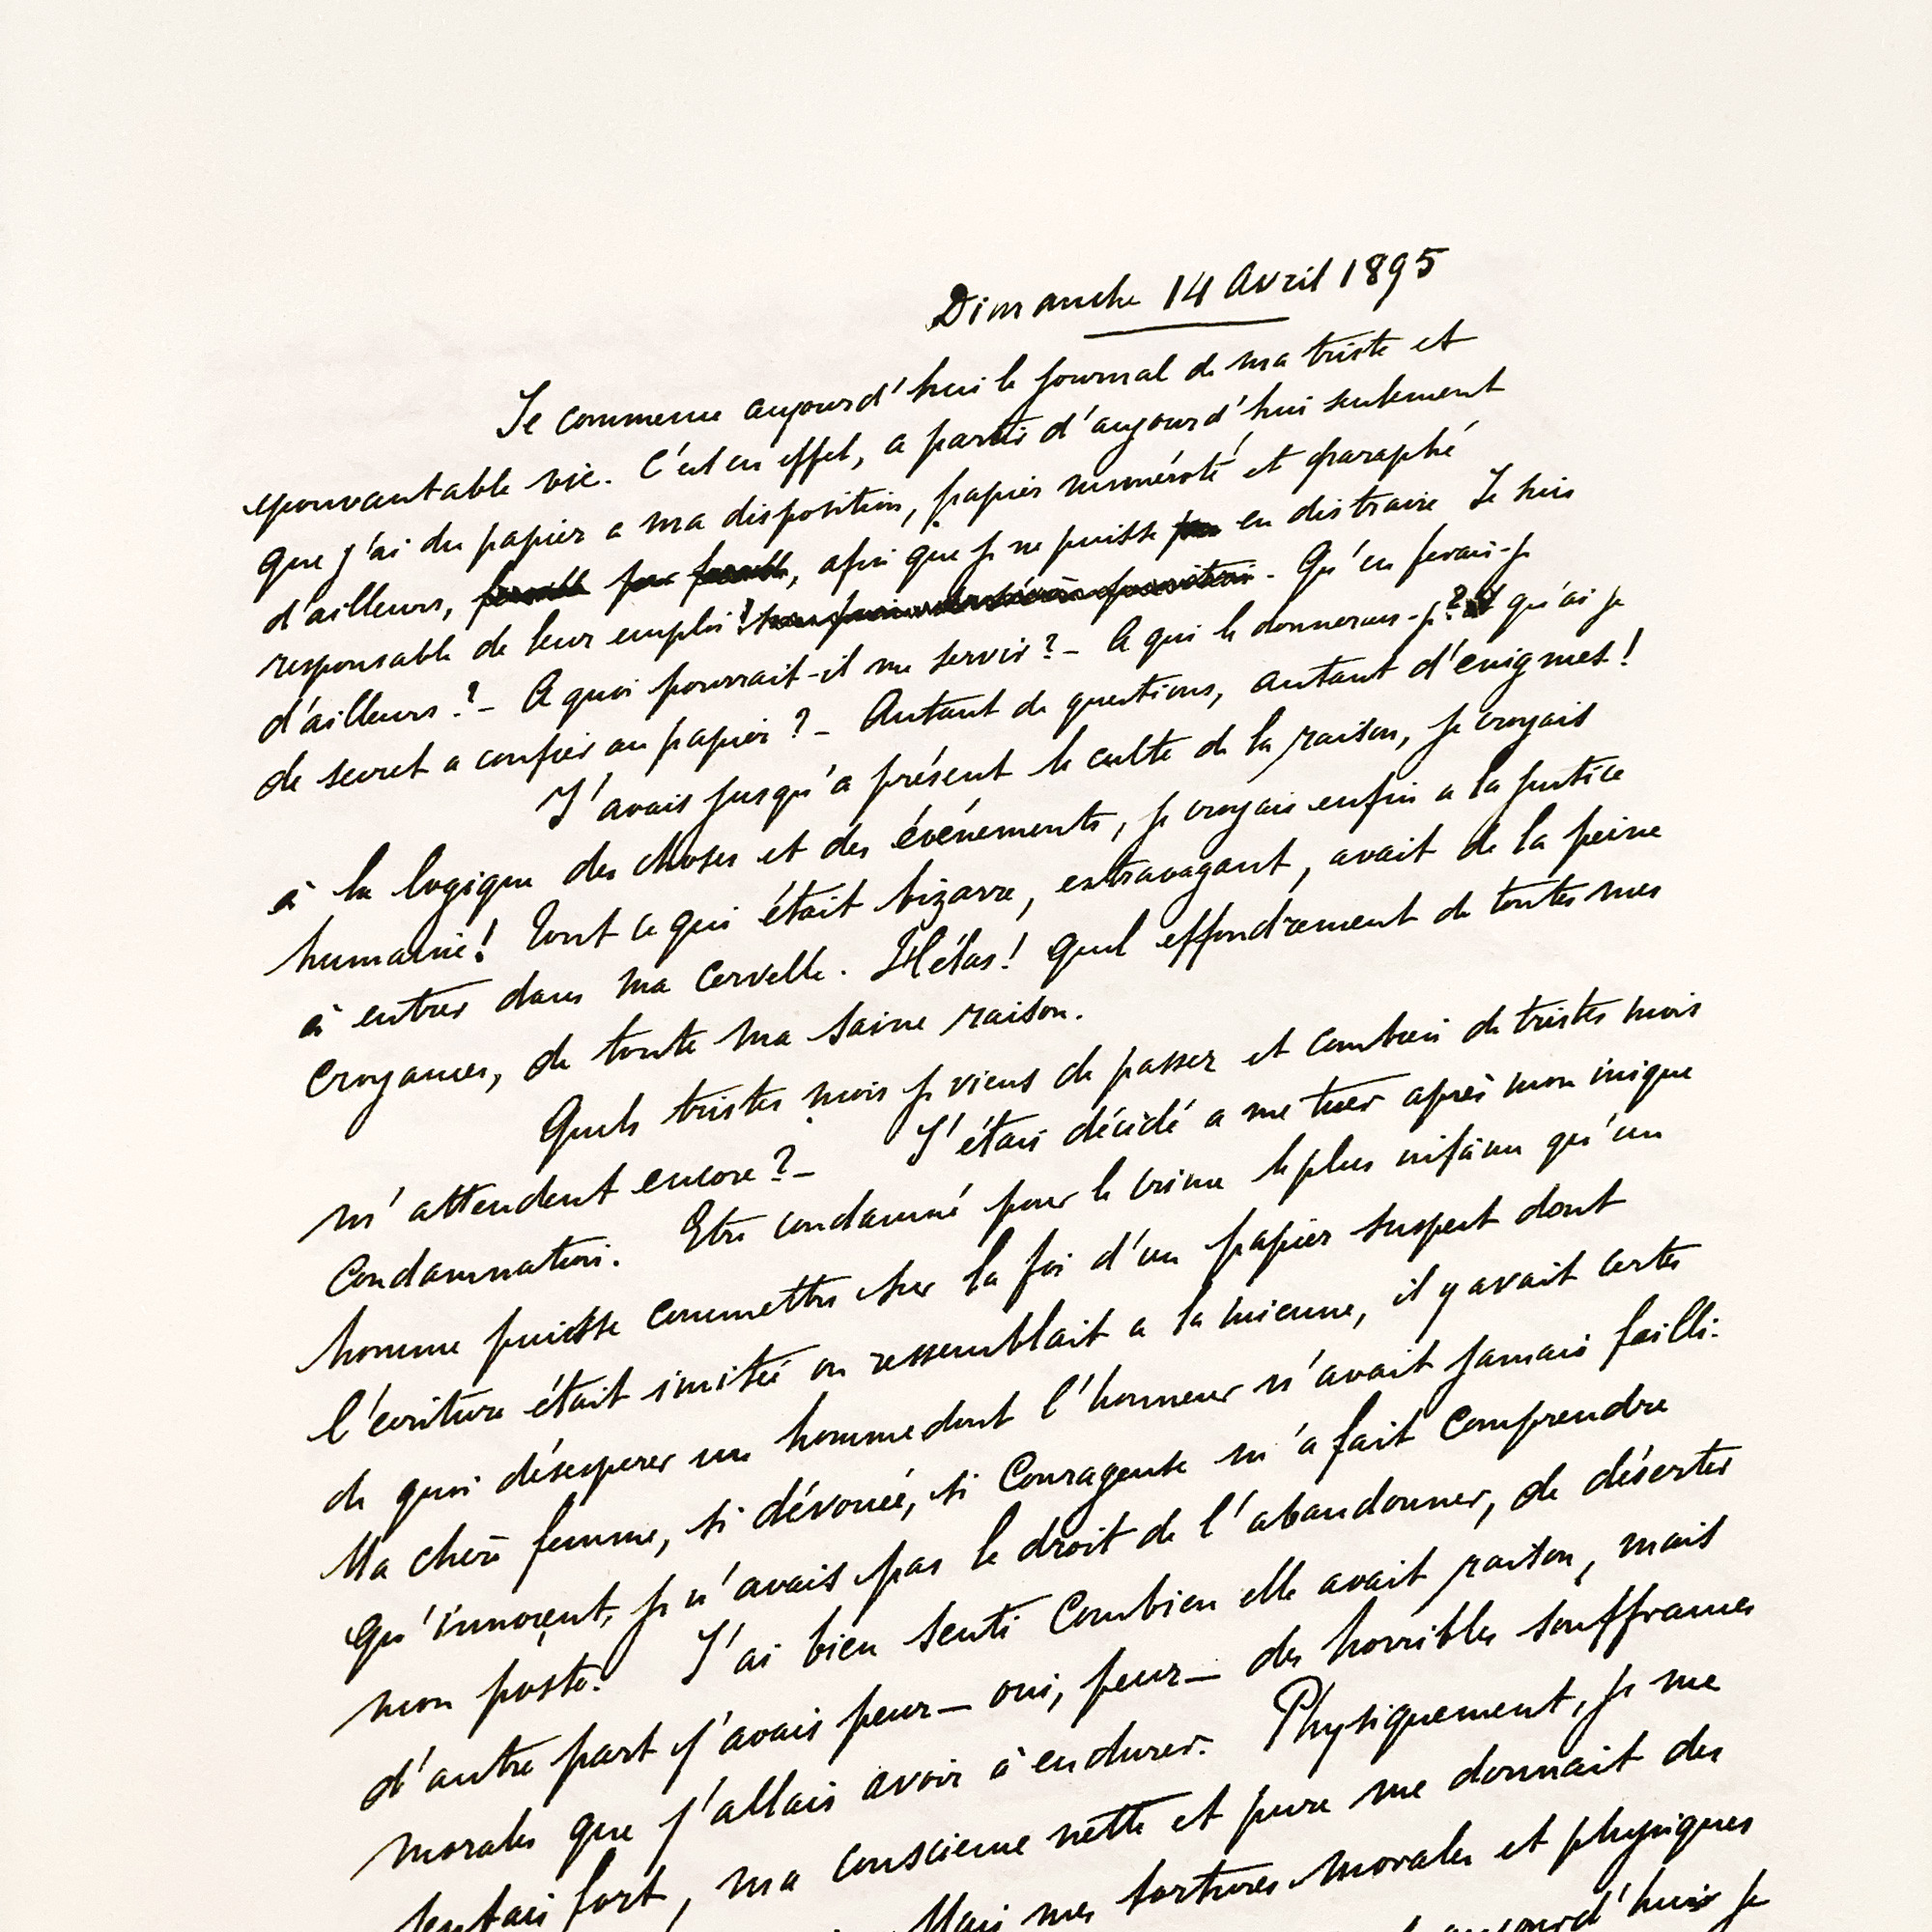 Dimanche 14 Avril 1895
Je commence aujourd'hui le journal de ma triste et
epouvantable vie. C'est en effet, a partir d'aujourd'hui seulement
que j'ai du papier a ma disposition, papier numéroté et paraphé
d'ailleurs, afin que je ne puisse en distraire Je suis
responsable de leur emploi! Qu'en ferais-je
d'ailleurs?- A quoi pourrait-il me servir?- A qui le donnerais-je? qu'ai je
de secret a confier au papier?- Autant de questions, autant d'enigmes!
J'avais jusqu'a présent le culte de la raison, je croyais
à la logique des choses et des événements, je croyais enfin a la justice
humaine! Tout ce qui était bizarre, extravagant, avait de la peine
à entrer dans ma cervelle. Hélas! Quel effondrement de toutes mes
croyances, de toute ma saine raison.
Quels tristes mois je viens de passer et combien de tristes mois
m'attendent encore?- J'étais décidé a me tuer après mon inique
condamnation. Etre condamné pour le crime le plus infâme qu'un
homme puisse commettre sur la foi d'un papier suspect dont
l'écriture était imitée ou ressemblait a la mienne, il y avait certes
de quoi désesperer un homme dont l'honneur n'avait jamais failli.
Ma chère femme, si dévouée, si courageuse m'a fait comprendre
qu'innocent, je n'avais pas le droit de l'abandonner, de déserter
mon poste. J'ai bien senti combien elle avait raison, mais
d'autre part j'avais peur— oui, peur— des horribles souffrances
morales que j'allais avoir à endurer. Physiquement, je me
sentais fort, ma conscience nette et pure me donnait des
Mais mes tortures morales et physiques
aujourd'hui je